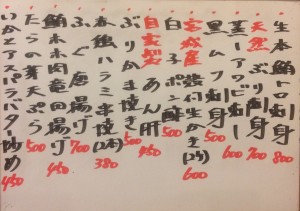 生本鮪トロ刺身 800
天然ぶり刺身 700
蒸しアワビ 600
黒ムツ刺身 500
宮城産 殻付生かき(2ケ) 600
白子ポン酢 500
自家製あん肝 450
ぶりかま焼き 500
本鮪ハラミ串焼(2本) 380
ふぐ唐揚げ 700
鮪ホホ肉竜田揚げ 450
たらの芽天ぷら 500
いかとアスパラバター炒め 450